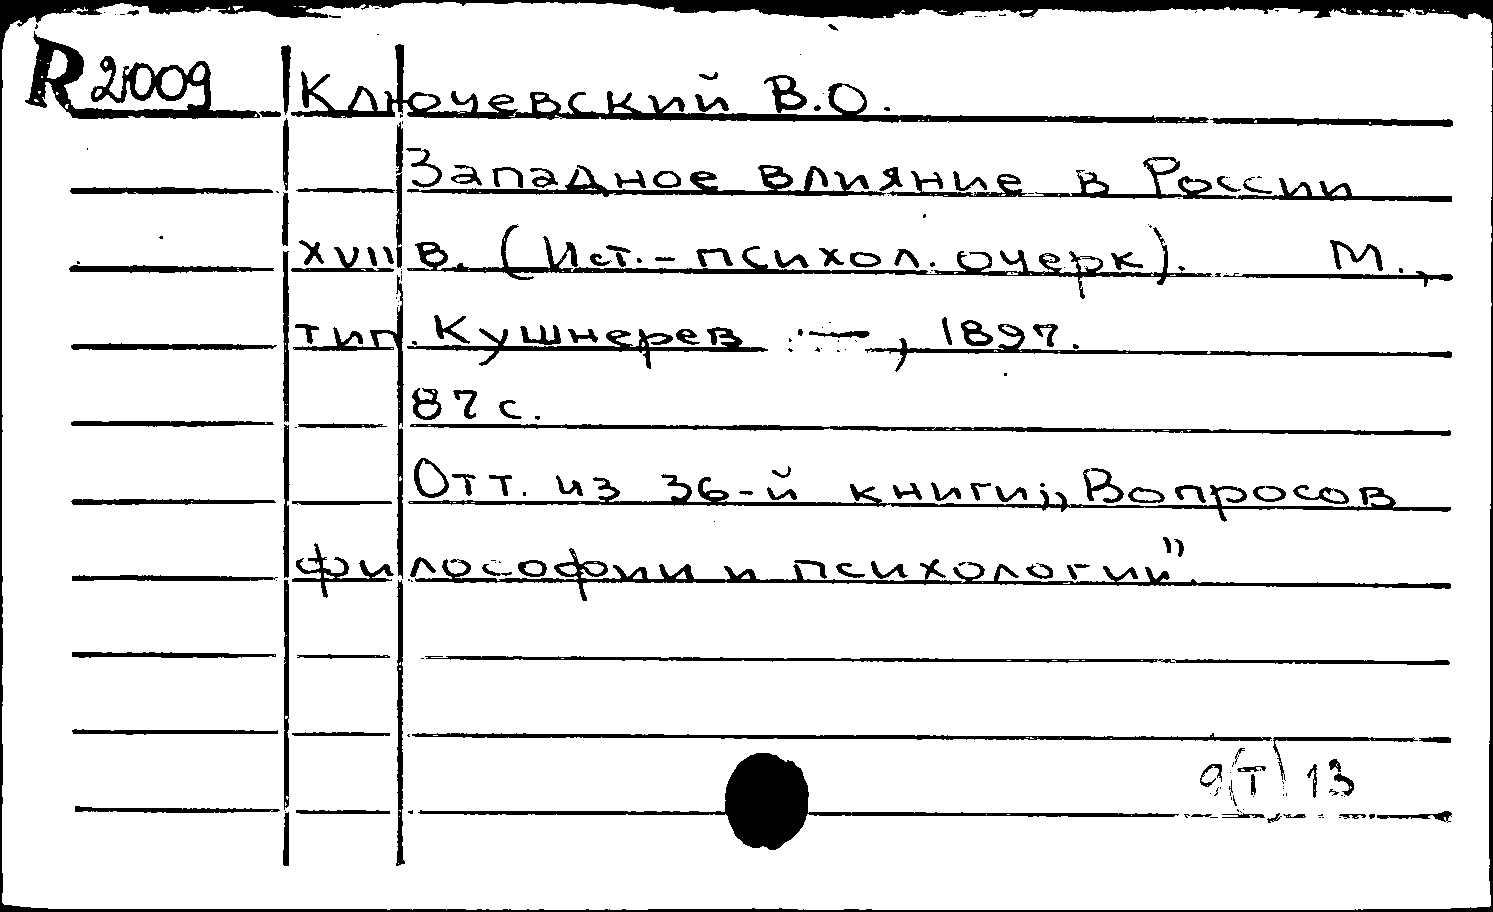 R 2009
Ключевский В.О.
Западное влияние в России
XVII в. (Ист.-психол. очерк). М.,
тип. Кушнерев —, 1897.
87 с.
Отт. из 36-й книги „Вопросов
философии и психологии”.
9(Т)13